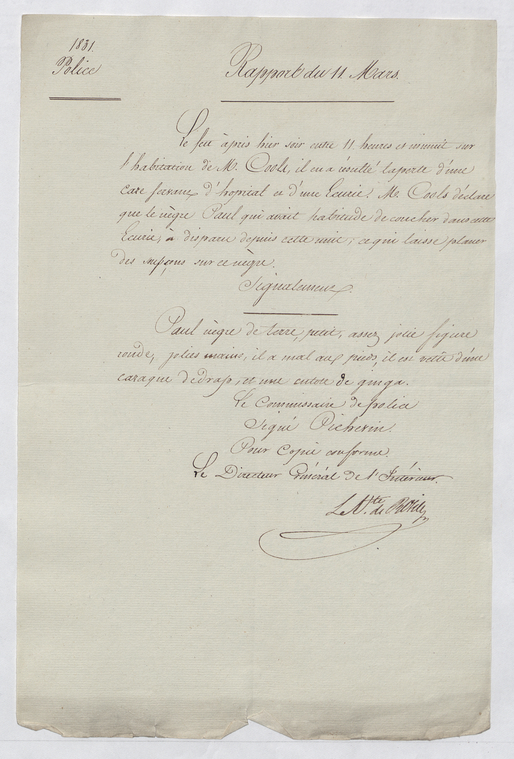 1831.
Police
Rapport du 11 Mars.
Le feu à pris hier soir entre 11 heures et minuit sur
l'habitation de M. Cools, il en a résulté la perte d'une
case servant d'hopital et d'une Ecurie. M. Cools déclare
que le nègre Paul qui avait habitude de coucher dans cette
Ecurie, à disparu depuis cette nuit, ce qui laisse planer
des supçons sur ce nègre.
Signalement.
Paul nègre de terre, petit, assez jolie figure
ronde, jolies mains, il a mal aux pieds, il est vetu d'une
cazaque de drap, et une culote de ginga.
Le Commissaire de police
Signé Picherin
Pour Copie conforme
Le Directeur Général de l'Intérieur.
Le Vte de